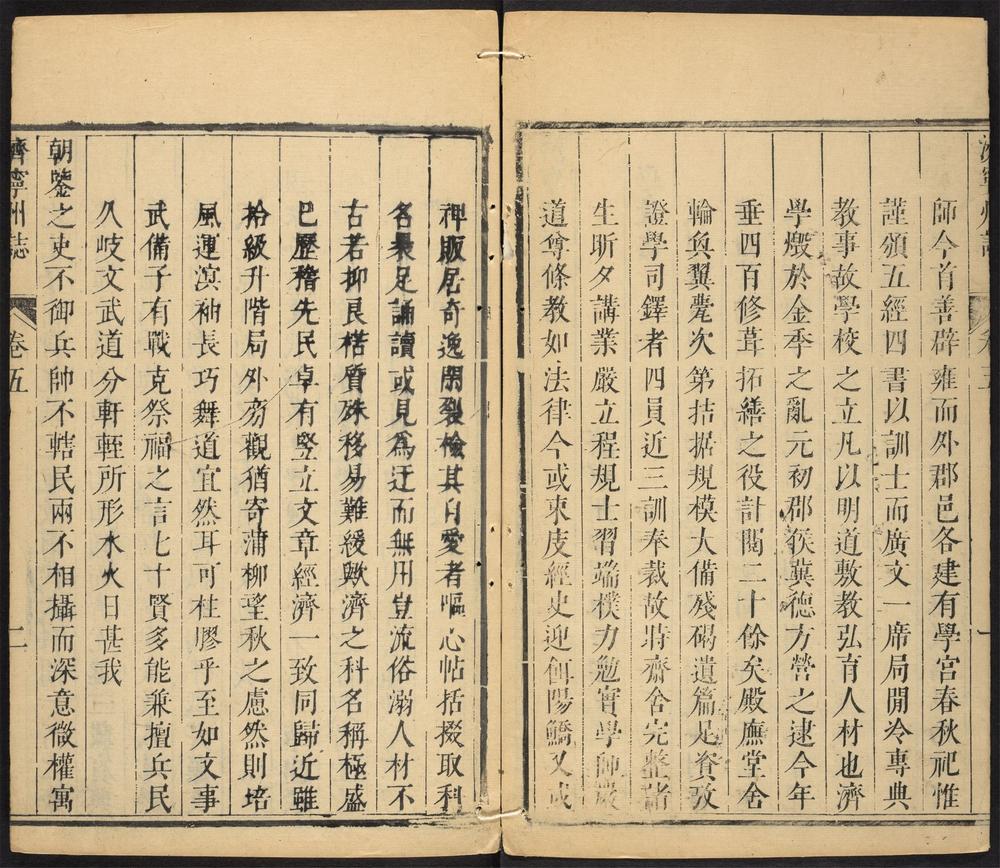 濟寧州誌
卷五
一
師今首善辟雍而外郡邑各建有學宮春秋祀惟
謹頒五經四書以訓士而廣文一席局閒冷專典
教事故學校之立凡以明道敷教弘育人材也濟
學燬於金季之亂元初郡侯冀德方營之逮今年
垂四百修葺拓繕之役計閱二十餘矣殿廡堂舍
輪奐翼甍次第拮据規模大備殘碣遺篇足資攷
證學司鐸者四員近三訓奉裁故時齋舍完整諸
生昕夕講業嚴立程規士習端樸力勉實學師嚴
道尊條教如法律今或束庋經史迎侮陽鱎又或
稗販居奇逸閑裂檢其自愛者嘔心帖括掇取科
名最足誦讀或見為迂而無用豈流俗溺人材不
古若抑良楛質殊移易難緩歟濟之科名稱極盛
巳歷稽先民卓有竪立文章經濟一致同歸近雖
拾級升階局外旁觀猶寄蒲柳望秋之慮然則培
風運溟袖長巧舞道宜然耳可柱膠乎至如文事
武備子有戰克祭福之言七十賢多能兼擅兵民
久岐文武道分軒輊所形水火日甚我
朝鑒之吏不御兵帥不轄民兩不相攝而深意微權寓
濟寧州誌
卷五
二